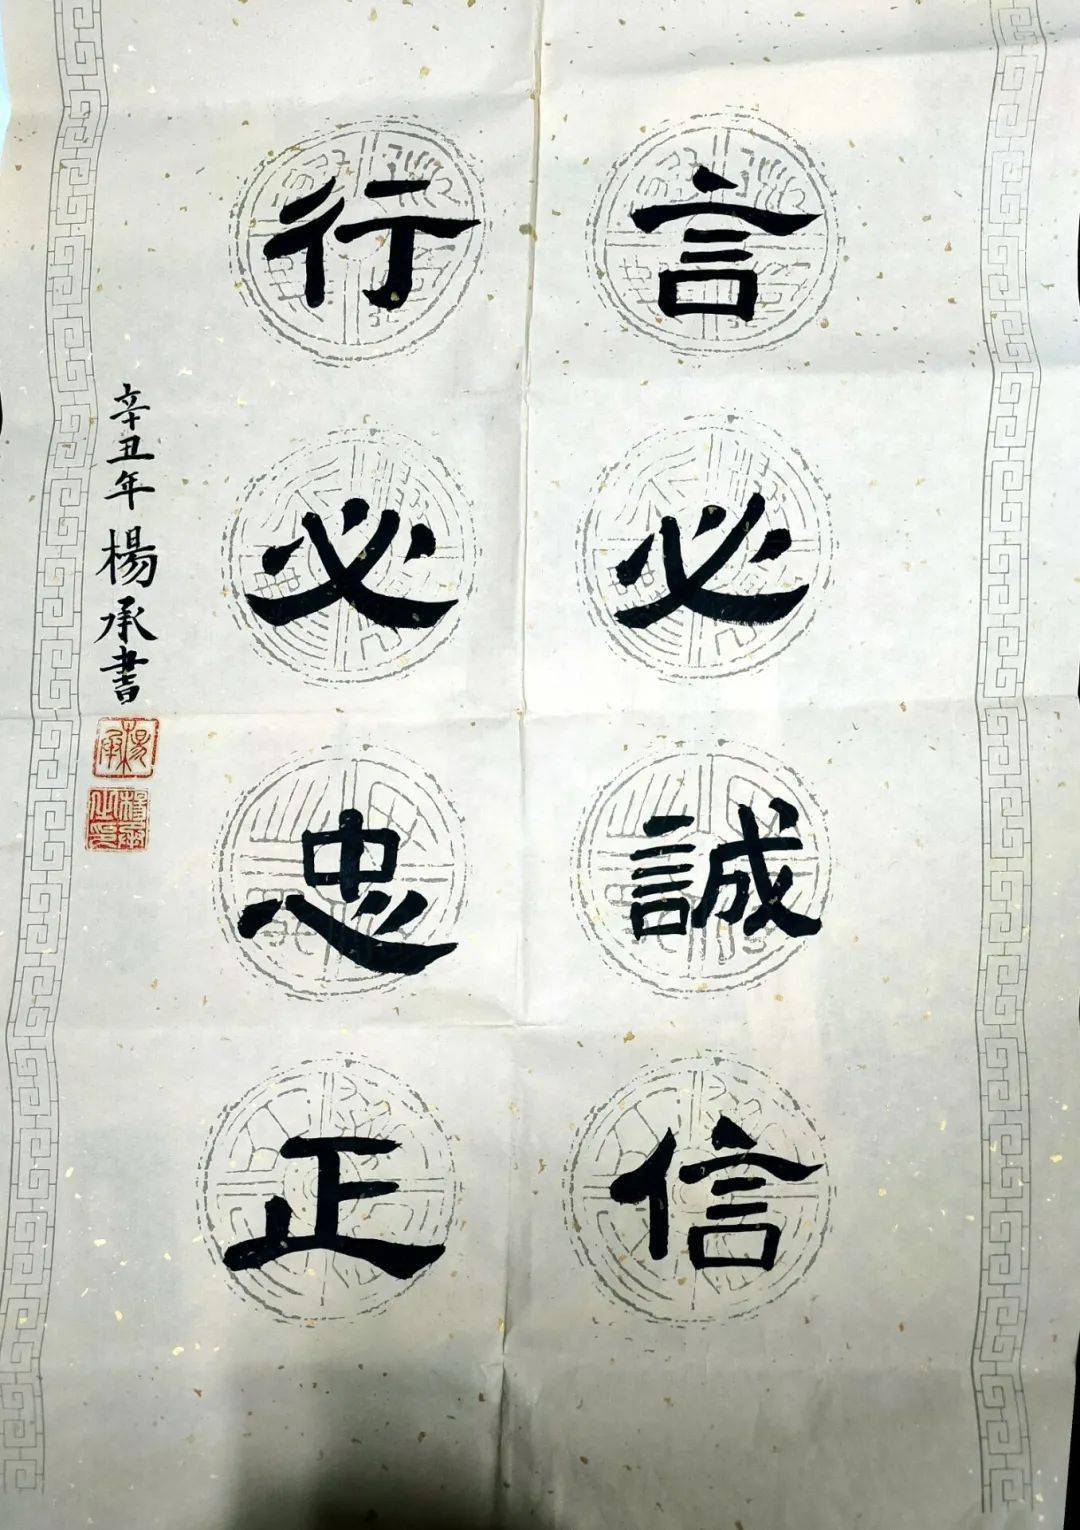 言必誠信
行必忠正
辛丑年楊承書